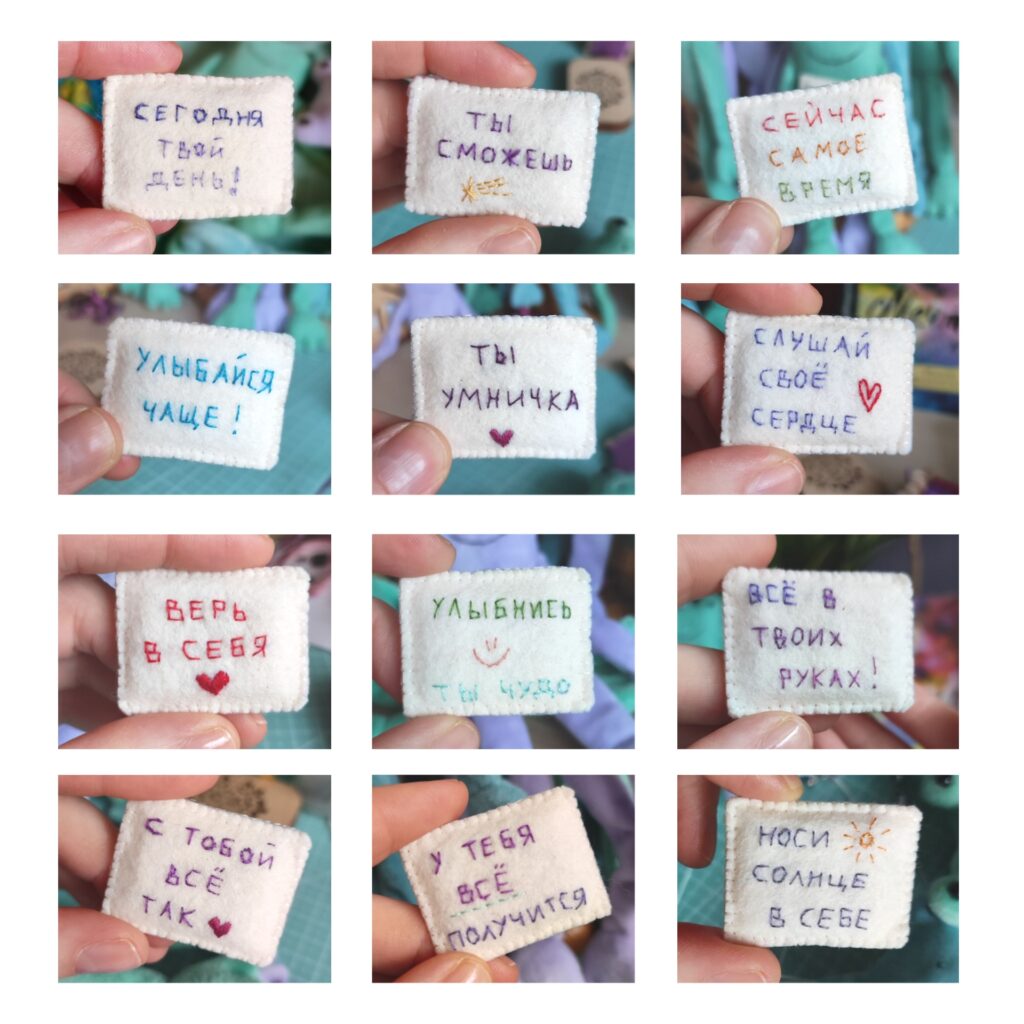 СЕГОДНЯ
ТВОЙ
ДЕНЬ!
ТЫ
СМОЖЕШЬ
СЕЙЧАС
САМОЕ
ВРЕМЯ
УЛЫБАЙСЯ
ЧАЩЕ!
ТЫ
УМНИЧКА
СЛУШАЙ
СВОЁ
СЕРДЦЕ
ВЕРЬ
В СЕБЯ
УЛЫБНИСЬ
ТЫ ЧУДО
ВСЁ В
ТВОИХ
РУКАХ!
С ТОБОЙ
ВСЁ
ТАК
У ТЕБЯ
ВСЁ
ПОЛУЧИТСЯ
НОСИ
СОЛНЦЕ
В СЕБЕ